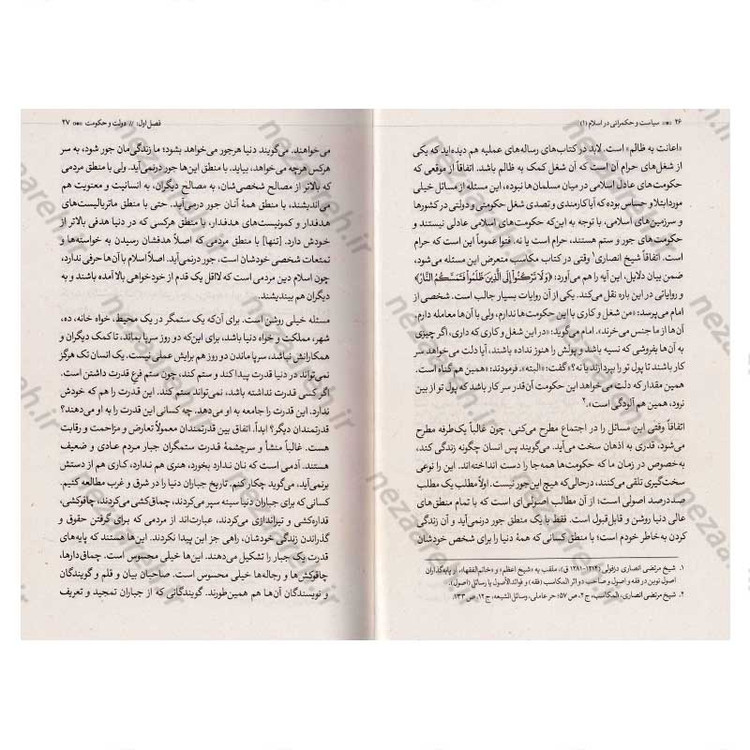 ۲۶ سیاست و حکمرانی در اسلام (۱)
«اعانت به ظالم» است. لابد در کتاب‌های رساله‌های عملیه هم دیده‌اید که یکی
از شغل‌های حرام آن است که آن شغل کمک به ظالم باشد. اتفاقاً از موقعی که
حکومت‌های عادل اسلامی در میان مسلمان‌ها نبوده، این مسئله از مسائل خیلی
مورد ابتلا و حساس بوده که آیا کارمندی و تصدی شغل حکومتی و دولتی در کشورها
و سرزمین‌های اسلامی، با توجه به این‌که حکومت‌های اسلامی عادلی نیستند و
حکومت‌های جور و ستم هستند، حرام است یا نه. فتوا عموماً این است که حرام
است. اتفاقاً شیخ انصاری۱ وقتی در کتاب مکاسب متعرض این مسئله می‌شود،
ضمن بیان دلایل، این آیه را هم می‌آورد: «وَلَا تَرْكَنُوا إِلَى الَّذِينَ ظَلَمُوا فَتَمَسَّكُمُ النَّارُ»
و روایاتی در این باره نقل می‌کند. یکی از آن روایات بسیار جالب است. شخصی از
امام می‌پرسد: «من شغل و کاری با این حکومت‌ها ندارم، ولی با آن‌ها معامله دارم،
آن‌ها از ما جنس می‌خرند». امام می‌گوید: «در این شغل و کاری که داری، اگر چیزی
به آن‌ها بفروشی که نسیه باشد و پولش را هنوز نداده باشند، آیا دلت می‌خواهد سر
کار باشند تا پول تو را بپردازند یا نه؟» گفت: «البته». فرمودند: «همین هم گناه است.
همین مقدار که دلت می‌خواهد این حکومت آن‌قدر سر کار باشد که پول تو از بین
نرود، همین هم آلودگی است».۲
اتفاقاً وقتی این مسائل را در اجتماع مطرح می‌کنی، چون غالباً یک‌طرفه مطرح
می‌شود، قدری به اذهان سخت می‌آید. می‌گویند پس انسان چگونه زندگی کند،
به‌خصوص در زمان ما که حکومت‌ها همه‌جا را دست انداخته‌اند. این را نوعی
سخت‌گیری تلقی می‌کنند، درحالی‌که هیچ این‌جور نیست. اولاً مطلب یک مطلب
صددرصد اصولی است؛ از آن مطالب اصولی‌ای است که با تمام منطق‌های
عالی دنیا روشن و قابل‌قبول است. فقط با یک منطق جور درنمی‌آید و آن زندگی
کردن به‌خاطر خودم است؛ با منطق کسانی که همهٔ دنیا را برای شخص خودشان
۱. شیخ مرتضی انصاری دزفولی (۱۲۱۴-۱۲۸۱ ق)، ملقب به «شیخ اعظم» و «خاتم‌الفقها»، از پایه‌گذاران
اصول نوین در فقه و اصول و صاحب دو اثر المکاسب (فقه) و فوائدالأصول یا رسائل (اصول).
۲. شیخ مرتضی انصاری، المکاسب، ج ۲، ص ۵۷؛ حر عاملی، وسائل الشیعه، ج ۱۲، ص ۱۳۳.
فصل اول: // دولت و حکومت ۲۷
می‌خواهند. می‌گویند دنیا هرجور می‌خواهد بشود؛ ما زندگی‌مان جور بشود، به سر
هرکس هرچه می‌خواهد، بیاید. با منطق این‌ها جور درنمی‌آید. ولی با منطق مردمی
که بالاتر از مصالح شخصی‌شان، به مصالح دیگران، به انسانیت و معنویت هم
می‌اندیشند، با منطق همهٔ آنان جور درمی‌آید. حتی با منطق ماتریالیست‌های
هدفدار و کمونیست‌های هدفدار، با منطق هرکسی که در دنیا هدفی بالاتر از
خودش دارد. [تنها] با منطق مردمی که اصلاً هدفشان رسیدن به خواسته‌ها و
تمتعات شخصی خودشان است، جور درنمی‌آید. اصلاً اسلام با آن‌ها حرفی ندارد،
چون اسلام دین مردمی است که لااقل یک قدم از خودخواهی بالا آمده باشند و به
دیگران هم بیندیشند.
مسئله خیلی روشن است. برای آن‌که یک ستمگر در یک محیط، خواه خانه، ده،
شهر، مملکت و خواه دنیا باشد، برای این‌که دو روز سرپا بماند، تا کمک دیگران و
همکارانش نباشد، سرپا ماندن دو روز هم برایش عملی نیست. یک انسان تک هرگز
نمی‌تواند در دنیا قدرت پیدا کند و ستم کند، چون ستم فرع قدرت داشتن است.
اگر کسی قدرت نداشته باشد، نمی‌تواند ستم کند. این قدرت را هم که خودش
ندارد. این قدرت را جامعه به او می‌دهد. چه کسانی این قدرت را به او می‌دهند؟
قدرتمندان دیگر؟ ابداً. اتفاق بین قدرتمندان معمولاً تعارض و مزاحمت و رقابت
هست. غالباً منشأ و سرچشمهٔ قدرت ستمگران جبار مردم عادی و ضعیف
هستند. آدمی است که نان ندارد بخورد، هنری هم ندارد، کاری هم از دستش
برنمی‌آید، می‌گوید چکار کنم. تاریخ جباران دنیا را در شرق و غرب مطالعه کنیم.
کسانی که برای جباران دنیا سینه سپر می‌کردند، چماق‌کشی می‌کردند، چاقوکشی،
قداره‌کشی و تیراندازی می‌کردند، عبارت‌اند از مردمی که برای گرفتن حقوق و
گذراندن زندگی خودشان، راهی جز این پیدا نکردند. این‌ها هستند که پایه‌های
قدرت یک جبار را تشکیل می‌دهند. این‌ها خیلی محسوس است. چماق‌دارها،
چاقوکش‌ها و رجاله‌ها خیلی محسوس است. صاحبان بیان و قلم و گویندگان
و نویسندگان آن‌ها هم همین‌طورند. گویندگانی که از جباران تمجید و تعریف
nezaareh.ir